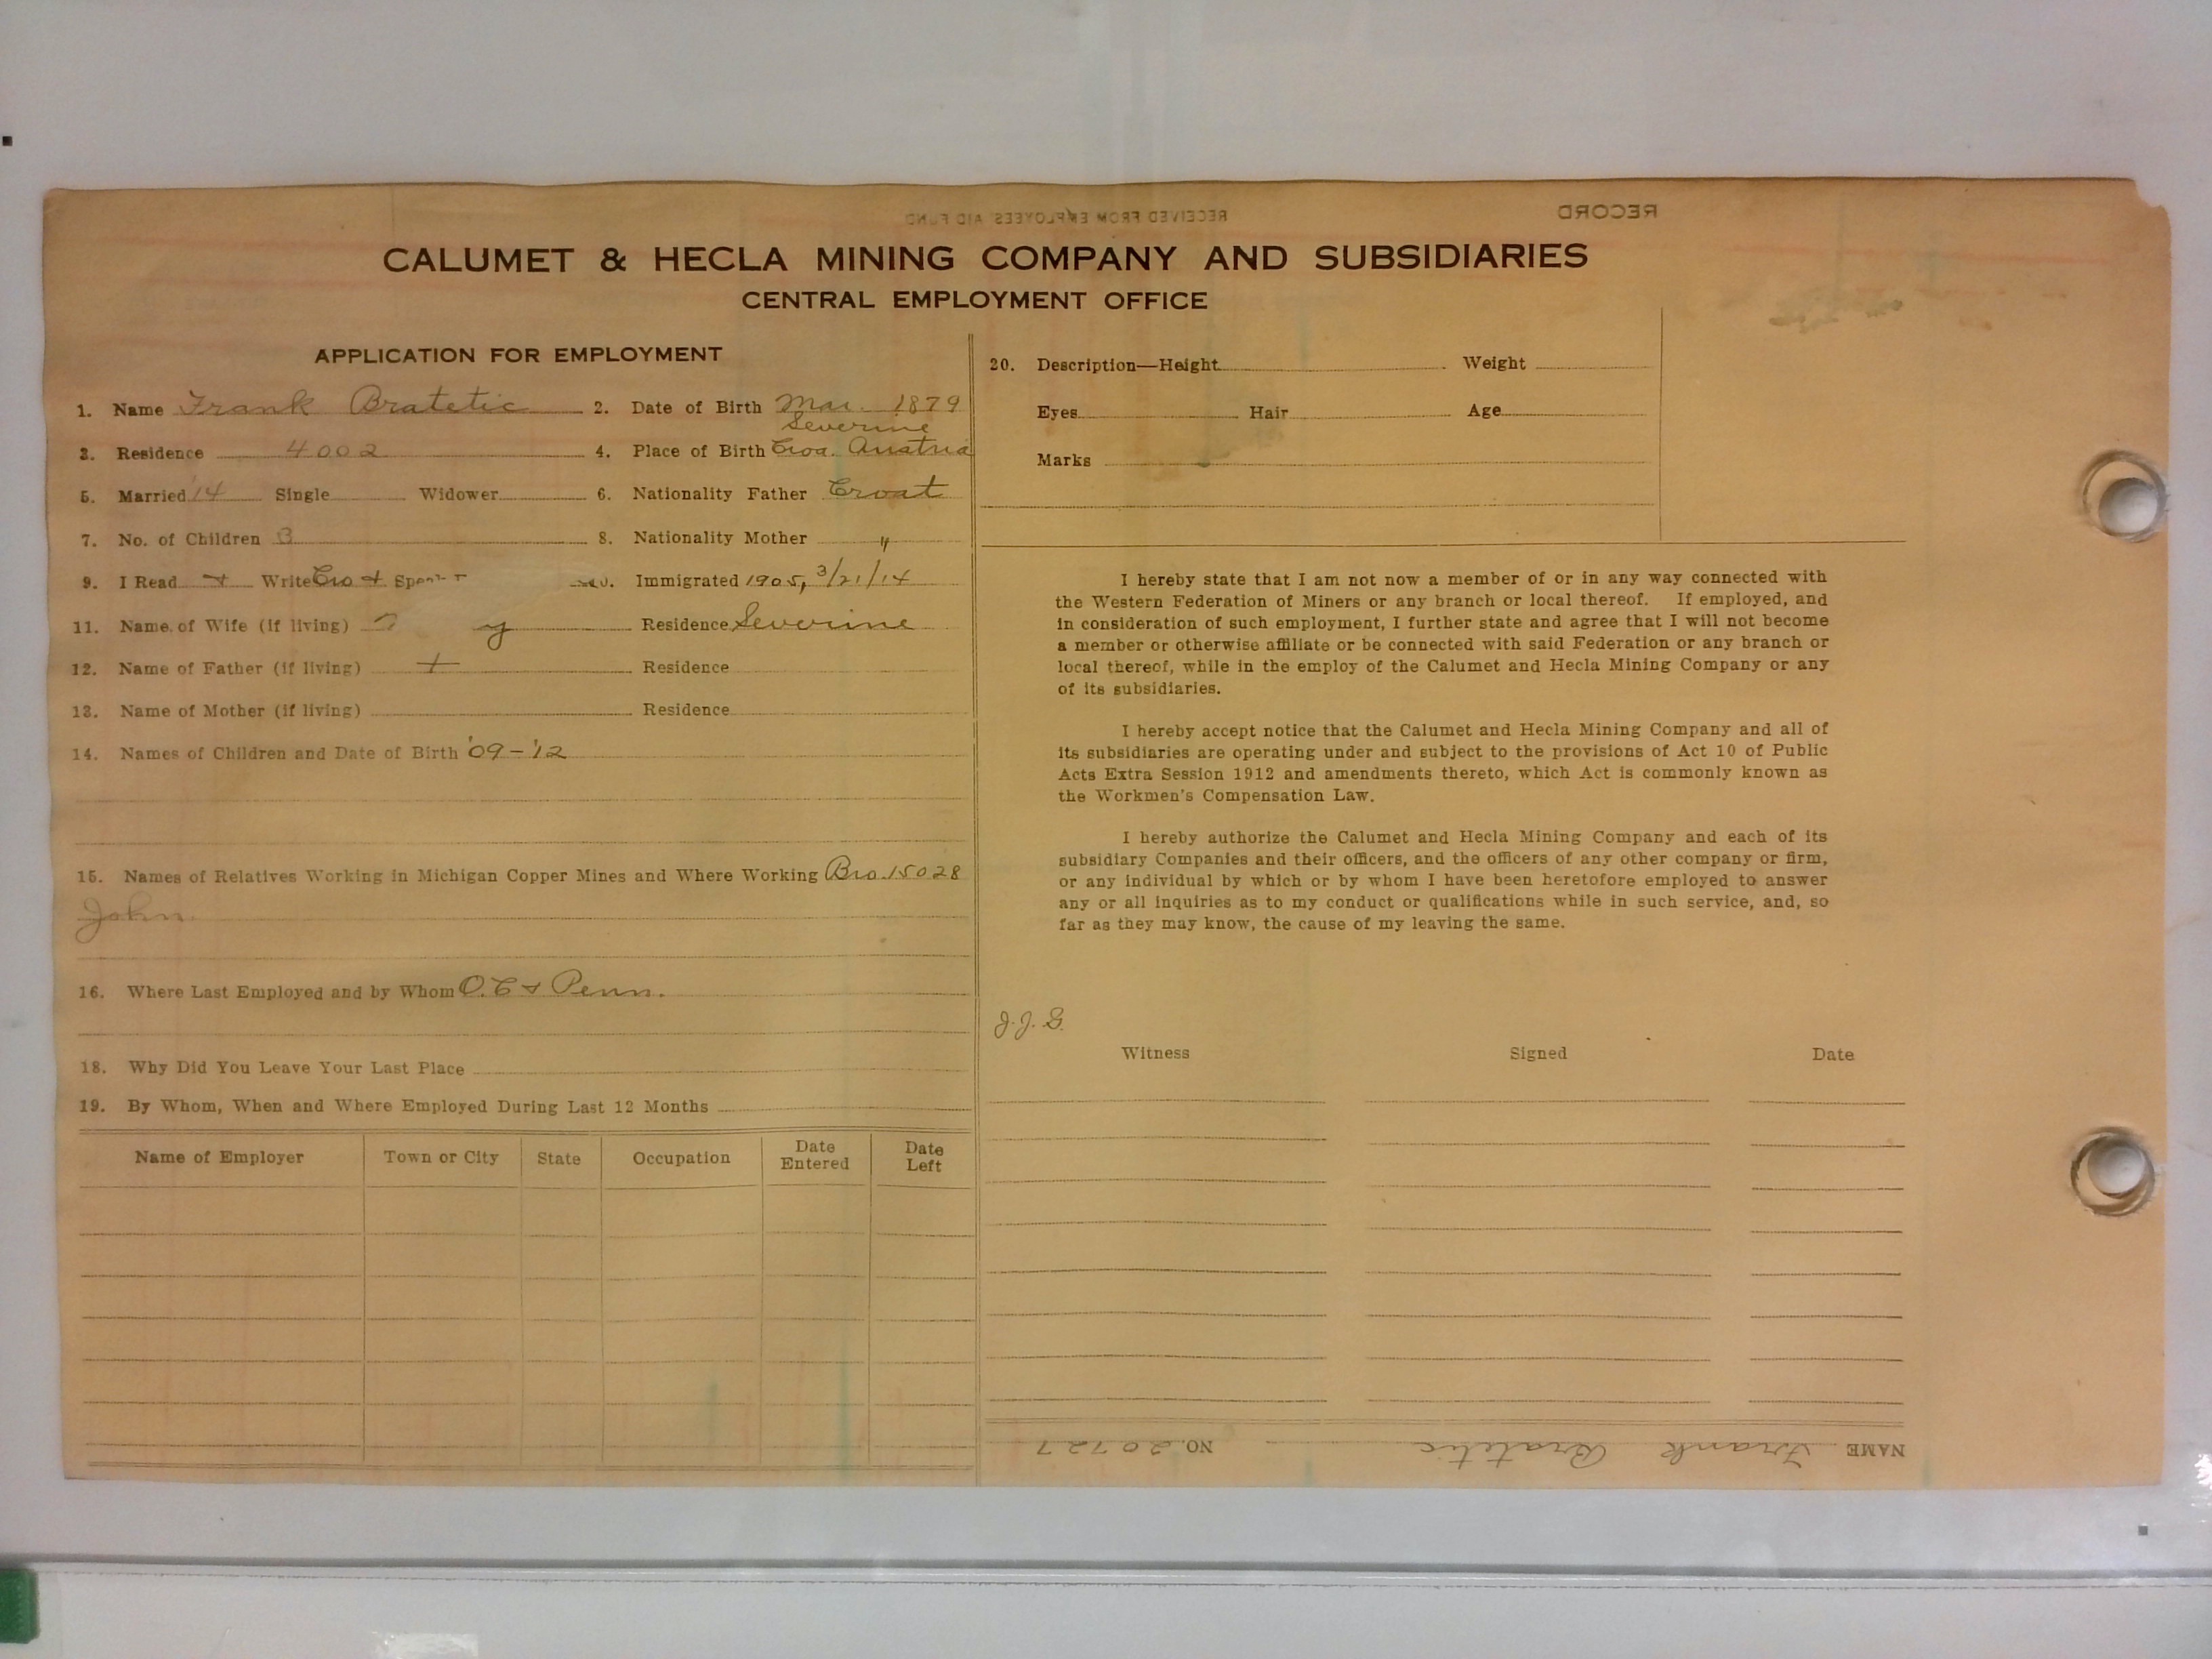 RECEIVED FROM EMPLOYEES AID FUND
RECORD
CALUMET & HECLA MINING COMPANY AND SUBSIDIARIES
CENTRAL EMPLOYMENT OFFICE
APPLICATION FOR EMPLOYMENT
1. Name Frank Bratetic 2. Date of Birth Mar. 1879
Severine
3. Residence 4002 4. Place of Birth Croa. Austria
5. Married '14 Single Widower 6. Nationality Father Croat
7. No. of Children 3 8. Nationality Mother "
9. I Read + Write Cro + 10. Immigrated 1905, 3/21/14
11. Name of Wife (if living) Residence Severine
12. Name of Father (if living) + Residence
13. Name of Mother (if living) Residence
14. Names of Children and Date of Birth '09-'12
15. Names of Relatives Working in Michigan Copper Mines and Where Working Bro. 15028
John.
16. Where Last Employed and by Whom O.C + Penn.
18. Why Did You Leave Your Last Place
19. By Whom, When and Where Employed During Last 12 Months
Name of Employer Town or City State Occupation Date Entered Date Left
20. Description—Height Weight
Eyes Hair Age
Marks
I hereby state that I am not now a member of or in any way connected with
the Western Federation of Miners or any branch or local thereof. If employed, and
in consideration of such employment, I further state and agree that I will not become
a member or otherwise affiliate or be connected with said Federation or any branch or
local thereof, while in the employ of the Calumet and Hecla Mining Company or any
of its subsidiaries.
I hereby accept notice that the Calumet and Hecla Mining Company and all of
its subsidiaries are operating under and subject to the provisions of Act 10 of Public
Acts Extra Session 1912 and amendments thereto, which Act is commonly known as
the Workmen's Compensation Law.
I hereby authorize the Calumet and Hecla Mining Company and each of its
subsidiary Companies and their officers, and the officers of any other company or firm,
or any individual by which or by whom I have been heretofore employed to answer
any or all inquiries as to my conduct or qualifications while in such service, and, so
far as they may know, the cause of my leaving the same.
J.J.S.
Witness Signed Date
NAME Frank Bratetic NO. 20727